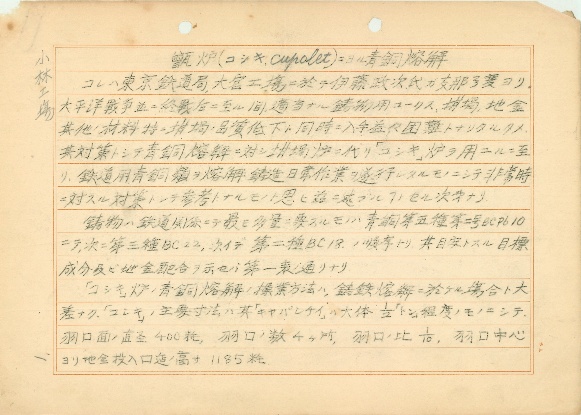 甑炉(コシキ, cupolet)ニヨル青銅熔解
コレハ東京鉄道局大宮工場ニ於テ伊藤政次氏ガ支那事変ヨリ
太平洋戦争並ニ終戦后ニ至ル間, 適当ナル鋳物用コークス, 坩堝, 地金
其他ノ材料特ニ坩堝ノ品質低下ト同時ニ入手益々困難トナリタル為メ
其対策トシテ青銅熔解ニ対シ坩堝炉ニ代リ「コシキ」炉ヲ用ニルニ至
リ, 鉄道用青銅鋳ヲ熔解鋳造日常作業ヲ遂行シタルモノニシテ非常時
ニ対スル対策トシテ参考トナルモノト思ヒ誌ニ
鋳物ハ鉄道関係ニテ最モ多量ニ要スルモノハ青銅第五種第二号BCPb10
ニテ次ニ第三種BC22, 次イデ第二種BC18ノ順序トリ 其目
成分及ビ地金配合ヲ示セバ第一表ノ通リナリ
「コシキ」炉ノ青銅熔解ノ操業方法ハ, 鋳鉄熔解ニ於ケル場合ト大
差ナク, 「コシキ」ノ主要寸法ハ其「キャパシチイ」ハ大体1/2トン程度ノモノニシテ,
羽口面ノ直径400粍, 羽口ノ数4ヶ所, 羽口ノ比1/10, 羽口中心
ヨリ地金投入口迄ノ高サ1185粍
小林工場
1.